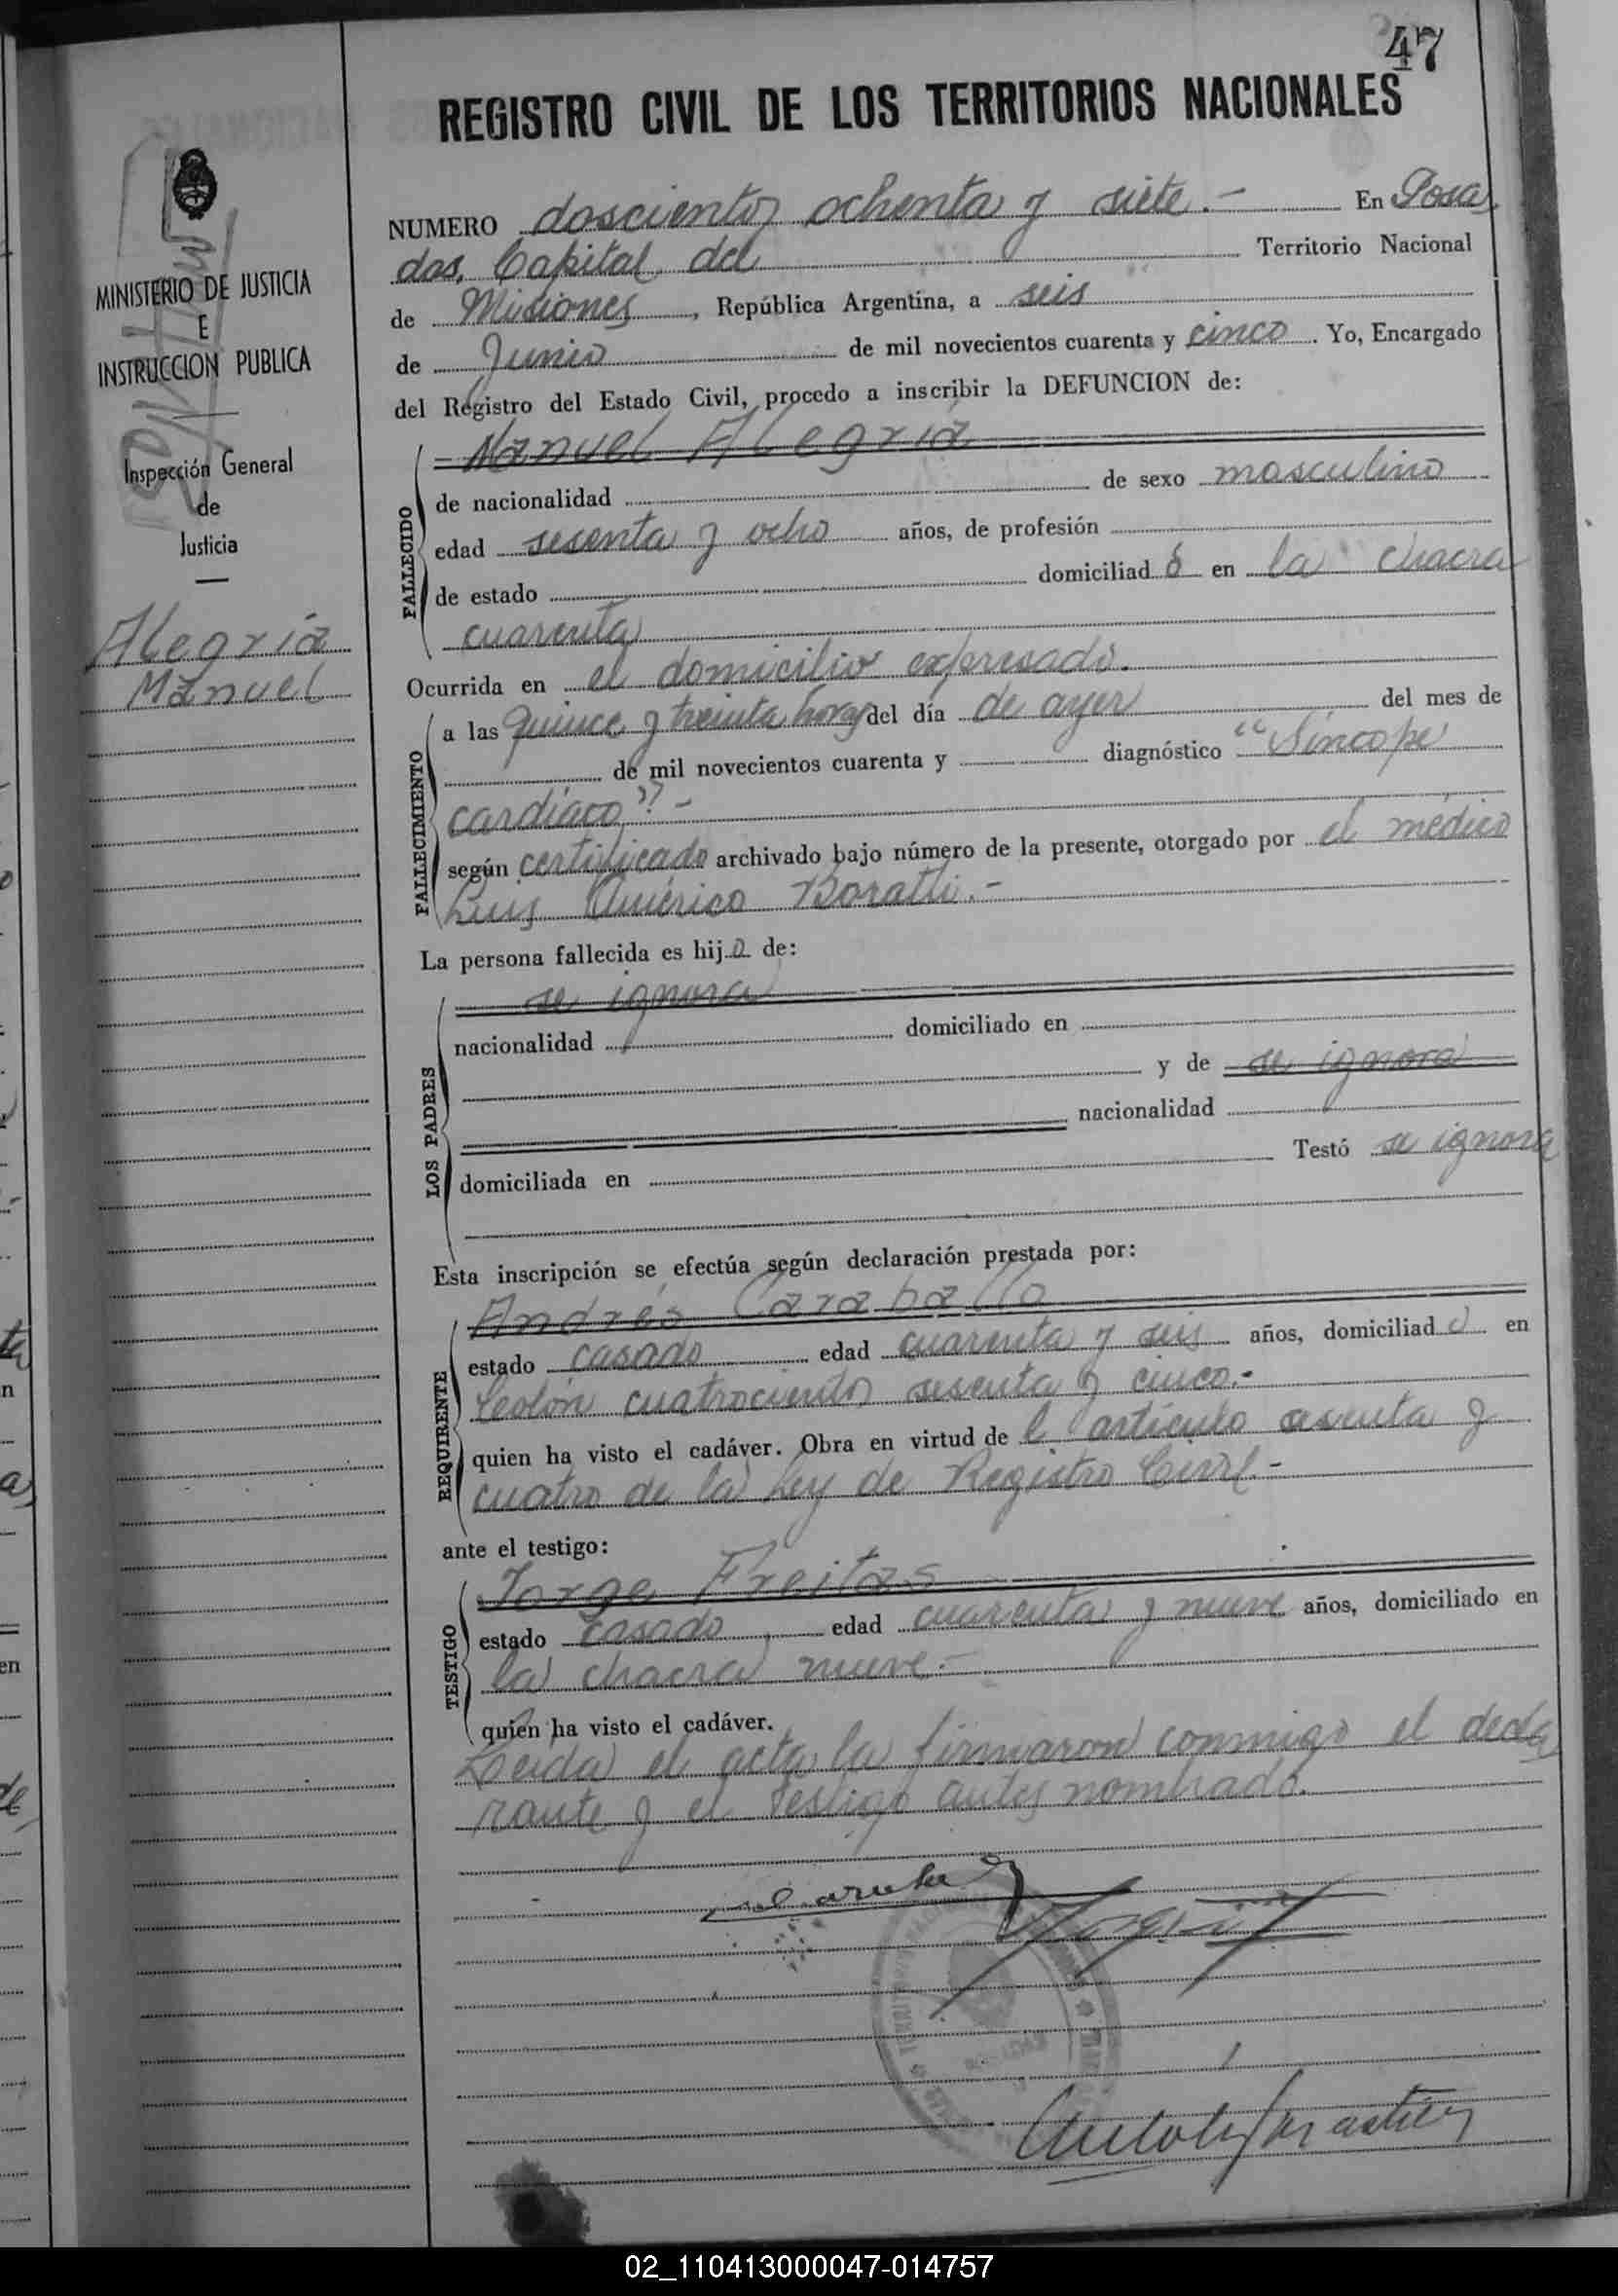 47
REGISTRO CIVIL DE LOS TERRITORIOS NACIONALES
MINISTERIO DE JUSTICIA
E
INSTRUCCION PUBLICA
Inspección General
de
Justicia
Alegría
Manuel
NUMERO doscientos ochenta y siete.- En Posa
das, Capital del Territorio Nacional
de Misiones, República Argentina, a seis
de Junio de mil novecientos cuarenta y cinco. Yo, Encargado
del Registro del Estado Civil, procedo a inscribir la DEFUNCION de:
FALLECIDO
Manuel Alegría
de nacionalidad de sexo masculino
edad sesenta y ocho años, de profesión
de estado domiciliado en la chacra
cuarenta
Ocurrida en el domicilio expresado.
FALLECIMIENTO
a las quince y treinta horas del día de ayer del mes de
de mil novecientos cuarenta y diagnóstico "Síncope
cardíaco".-
según certificado archivado bajo número de la presente, otorgado por el médico
Luis Américo Boratti.-
La persona fallecida es hijo de:
LOS PADRES
se ignora
nacionalidad domiciliado en
y de se ignora
nacionalidad
domiciliada en Testó se ignora
Esta inscripción se efectúa según declaración prestada por:
REQUIRENTE
Andrés Caraballo
estado casado edad cuarenta y seis años, domiciliado en
Colón cuatrocientos sesenta y cinco.-
quien ha visto el cadáver. Obra en virtud del artículo sesenta y
cuatro de la Ley de Registro Civil.-
ante el testigo:
TESTIGO
Jorge Freitas
estado casado, edad cuarenta y nueve años, domiciliado en
la chacra nueve.-
quien ha visto el cadáver.
Leida el acta la firmaron conmigo el decla
rante y el testigo antes nombrado.
02_110413000047-014757